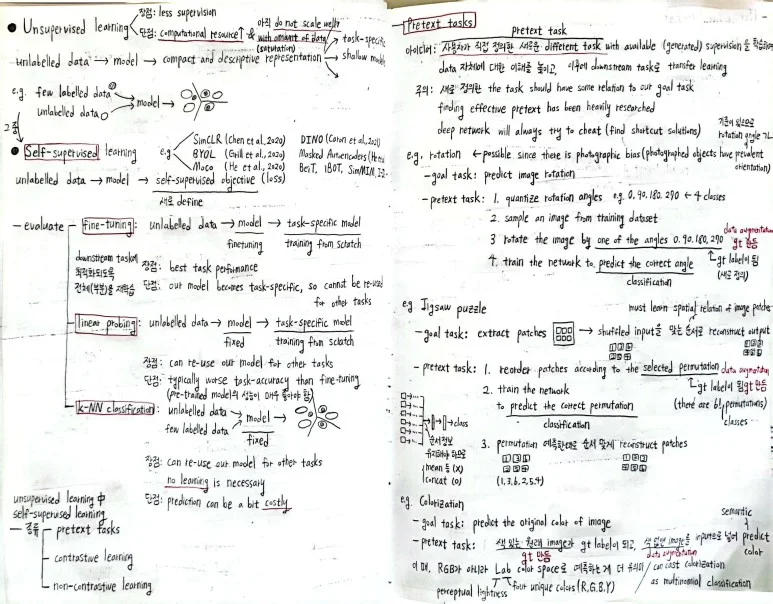 ● Unsupervised learning
장점: less supervision
단점: computational resource↑ & 아직 do not scale well with amount of data (saturation)
unlabelled data → model → compact and descriptive representation → task-specific
shallow model
e.g. few labelled data
unlabelled data
model →
● Self-supervised learning
e.g
SimCLR (Chen et al., 2020)
BYOL (Grill et al., 2020)
MoCo (He et al., 2020)
DINO (Caron et al., 2021)
Masked Autoencoders (He et al
BeiT, IBOT, SimMIM,
unlabelled data → model → self-supervised objective (loss)
새로 define
- evaluate
fine-tuning: unlabelled data → model → task-specific model
finetuning
training from scratch
downstream task에
최적화되도록
전체(부분)을 재학습
장점: best task performance
단점: our model becomes task-specific, so cannot be re-used
for other tasks
linear probing: unlabelled data → model → task-specific model
fixed
training from scratch
장점: can re-use our model for other tasks
단점: typically worse task-accuracy than fine-tuning
(pre-trained model의 성능이 매우 좋아야 함)
k-NN classification: unlabelled data
few labelled data
model →
fixed
장점: can re-use our model for other tasks
no learning is necessary
단점: prediction can be a bit costly
unsupervised learning 中
self-supervised learning
- 종류
pretext tasks
contrastive learning
non-contrastive learning
- Pretext tasks
Pretext task
아이디어: 사용자가 직접 정의한 새로운 different task with available (generated) supervision 을 학습하여
data 자체에 대한 이해를 높이고, 이후에 downstream task로 transfer learning
주의: 새로 정의한 the task should have some relation to our goal task
finding effective pretext has been heavily researched
deep network will always try to cheat (find shortcut solutions)
기준이 있으므로
rotation angle
e.g. rotation ← possible since there is photographic bias (photographed objects have prevalent
orientation)
- goal task: predict image rotation
- pretext task: 1. quantize rotation angles e.g. 0, 90, 180, 270 ← 4 classes
2. sample an image from training dataset
3. rotate the image by one of the angles 0, 90, 180, 270
data augmentation
gt 만듦
4. train the network to predict the correct angle
classification
gt label이 됨
(새로 정의)
e.g Jigsaw puzzle
must learn spatial relation of image patches
- goal task: extract patches → shuffled input을 맞는 순서로 reconstruct output
- pretext task: 1. reorder patches according to the selected permutation
data augmentation
gt label이 됨
gt 만듦
2. train the network
to predict the correct permutation
(there are 6! permutations)
classes
classification
→ class
순서정보
유지해야 하므로
mean 등 (X)
concat (O)
3. permutation 예측한대로 순서 맞게 reconstruct patches
(1, 3, 6, 2, 5, 4)
e.g. Colorization
- goal task: predict the original color of image
semantic
- pretext task: 색 있는 원래 image가 gt label이 되고, 색 없앤 image를 input으로 넣어 predict
color
gt 만듦
data augmentation
이 때, RGB가 아니라 Lab color space로 예측하는 게 더 유리
can cast colorization
perceptual lightness
four unique colors (R,G,B,Y)
as multinomial classification